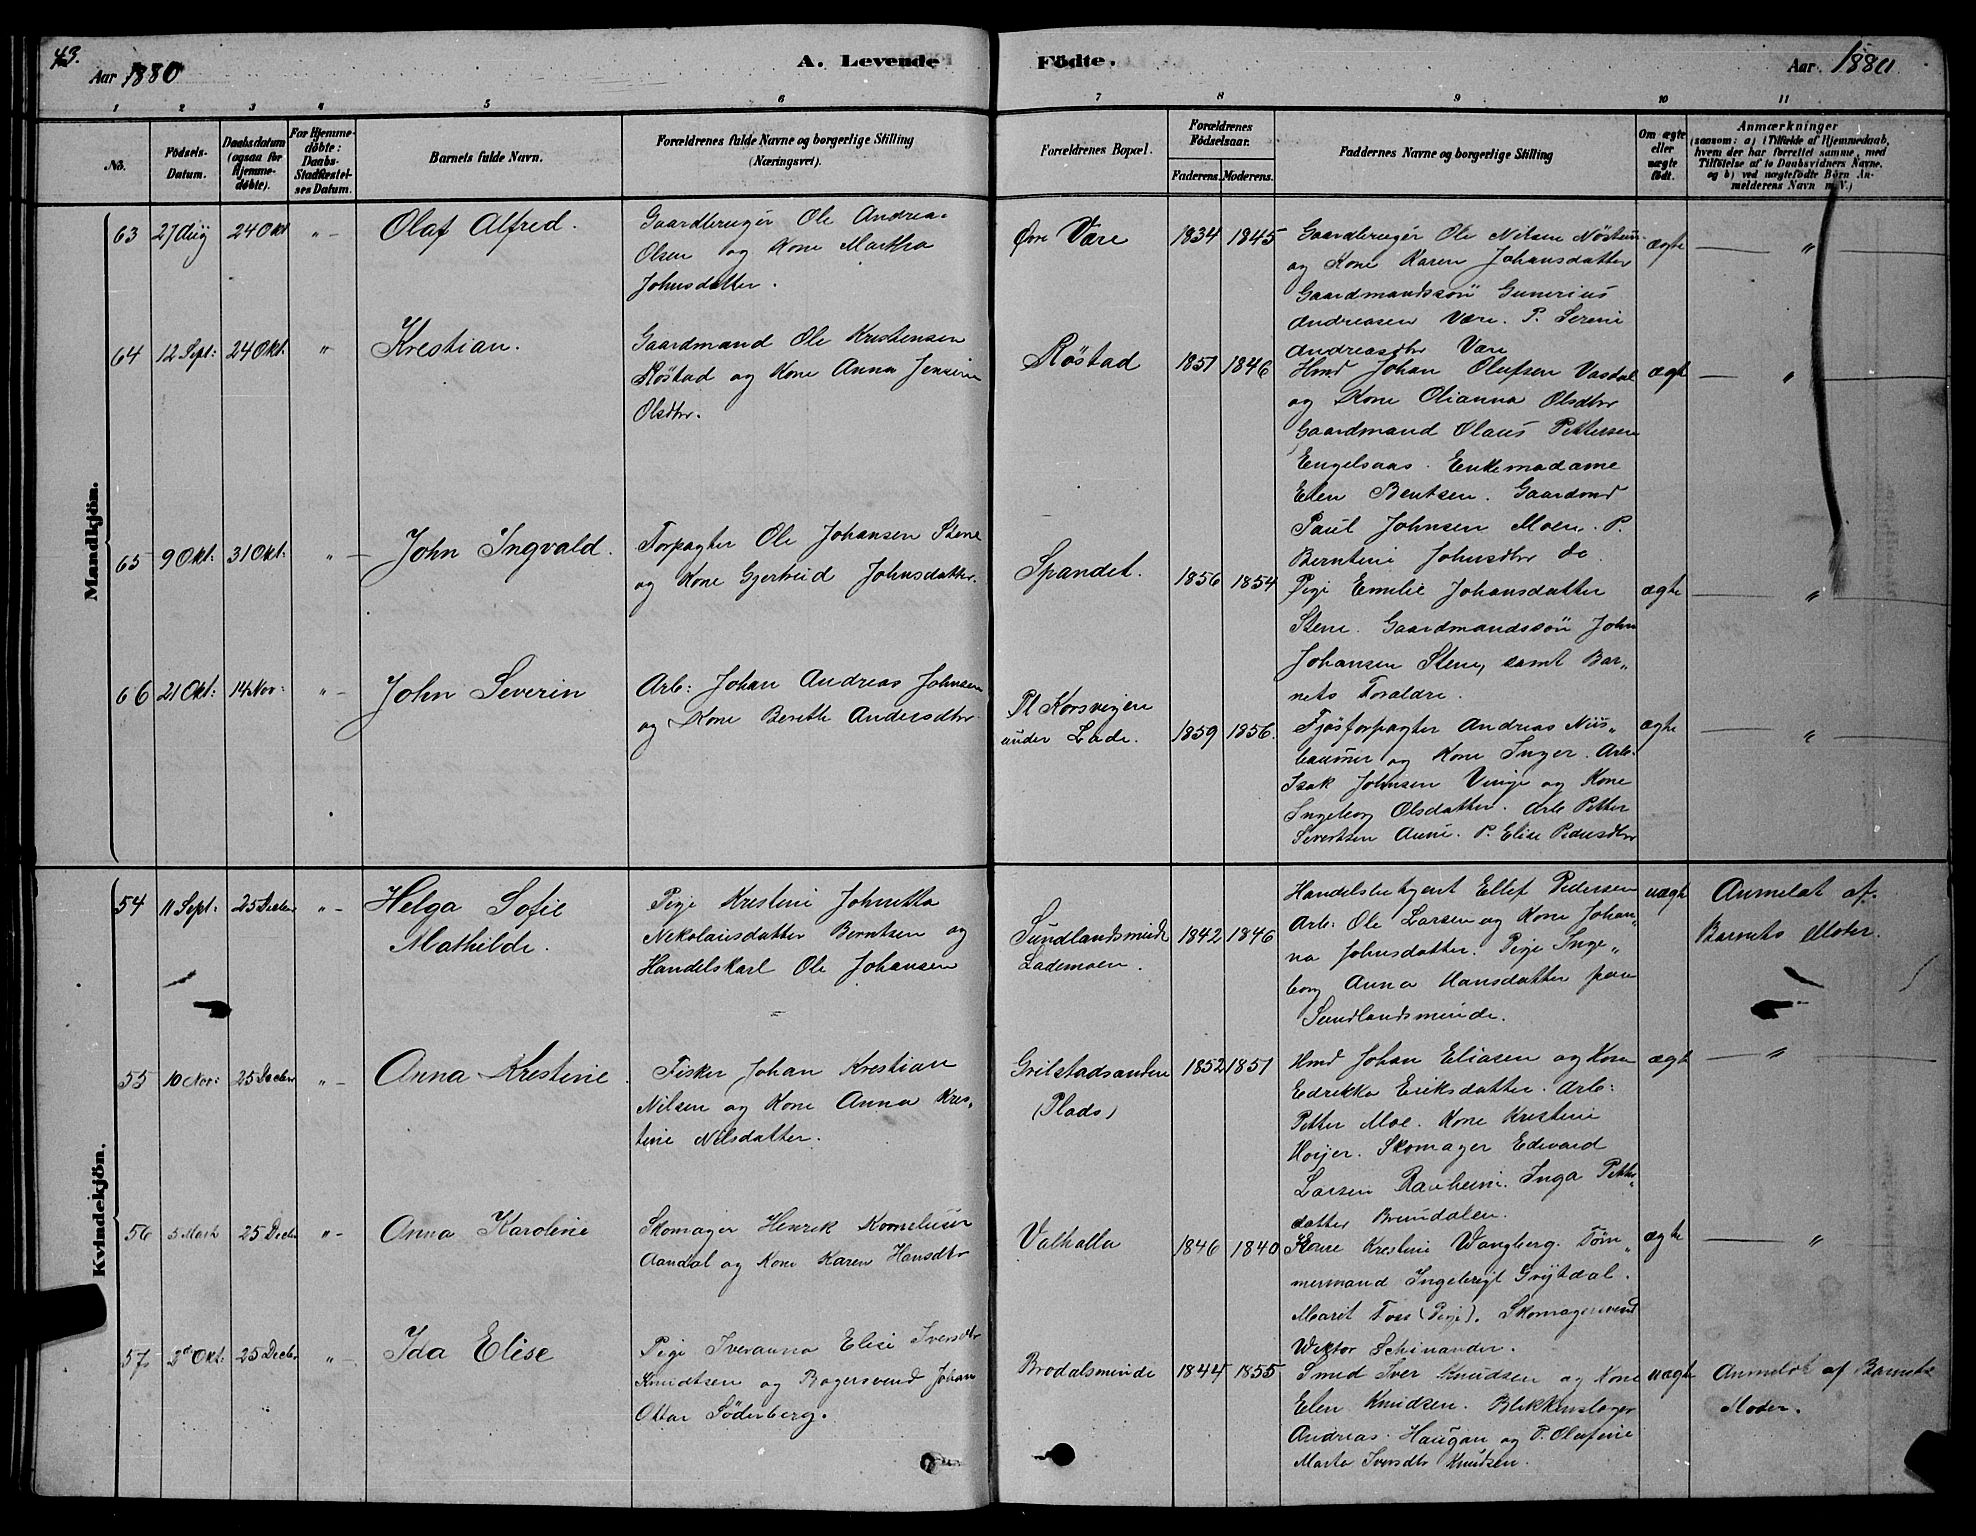 43.
Aar 1880
A. Levende
Födte.
Aar 1880
1 2 3 4 5 6 7 8 9 10 11
No.
Födsels-
Datum.
Daabsdatum
(ogsaa for
Hjemme-
døbte).
For Hjemme-
døbte:
Daabs-
Stadfæstel-
ses Datum.
Barnets fulde Navn.
Forældrenes fulde Navne og borgerlige Stilling
(Næringsvei).
Forældrenes Bopæl.
Forældrenes
Födselsaar.
Faderens. Moderens.
Faddernes Navne og borgerlige Stilling
Om ægte
eller
uægte
født.
Anmærkninger
(saasom: a) i Tilfælde af Hjemmedaab,
hvem der har forrettet samme, med
Tilföielse af to Daabsvidners Navne,
og b) ved uægtefödte Börn An-
melderens Navn m. V.)
Mandkjön.
63 27 Aug 24 Okt " Olaf Alfred.
Gaardbruger Ole Andrea-
Olsen og Kone Martha
Johnsdatter.
Øvre Være 1834 1845
Gaardbruger Ole Nilsen
og Kone Karen Johansdatter
Gaardmandssön Gunerius
Andreasen Være. P. Serene
Andreasdtr Være
ægte "
64 12 Sept: 24 Okt: " Krestian.
Gaardmand Ole Kristensen
Röstad og Kone Anna Jensine
Olsdtr.
Röstad 1851 1846
Hmd Johan Olufsen Vasdal
og Kone Olianna Olsdtr
Gaardmand Olaus Pettersen
Engelsaas. Enkemadame
Elen Bentsen. Gaardmd
Paul Johnsen Moen. P.
Berntine Johnsdtr do
ægte "
65 9 Okt: 31 Okt: " John Ingvald.
Forpagter Ole Johansen Stene
og Kone Gjertrud Johnsdatter.
Spandet. 1856 1854
Pige Emilie Johansdatter
Stene. Gaardmandssön John
Johansen Stene, samt Bar„
nets Foraldre.
ægte "
66 21 Okt: 14 Nov: " John Severin
Arb: Johan Andreas Johnsen
og Kone Berith Andersdtr
Pl Korsvigen
under Lade. 1859 1856.
Fjösforpagter Andreas Nus„
baumer og Kone Inger. Arb.
Isak Johnsen Vinge og Kone
Ingeborg Olsdatter. Arb Petter
Sivertsen Aune. P. Elise Pedersdtr
ægte "
Kvindekjön.
54 11 Sept: 25 Decbr " Helga Sofie
Mathilde.
Pige Kristine Johnetta
Nekolaisdatter Berntsen og
Handelskarl Ole Johansen
Sundlandsminde
Lademoen. 1842 1846
Handelsbetjent Ellef Pedersen
Arb: Ole Larsen og Kone Johan„
na Johnsdatter. Pige Inge„
borg Anna Hansdatter paa
Sundlandsminde.
uægte Anmeldt af
Barnets Moder.
55 10 Nov: 25 Decbr " Anna Krestine
Fisker Johan Krestian
Nilsen og Kone Anna Kres„
tine Nilsdatter.
Grilstadsanden
(Plads) 1852 1851
Hmd Johan Eliasen og Kone
Edrikka Eriksdatter. Arb:
Petter Moe. Kone Krestine
Höijer. Skomager Edvard
Larsen Ranheim. Inga Petter„
datter Brundalen.
ægte "
56 5 Mart 25 Decbr " Anna Karoline
Skomager Henrik Korneliusen
Aandal og Kone Karen Hansdtr
Valhalla 1846 1840
Kone Krestine Wangberg. Töm„
mermand Ingebrigt Gröjtdal.
Marit Foss (Pige). Skomagersvend
Wiktor Schinander.
ægte "
57 2d Okt: 25 Decbr " Ida Elise
Pige Iveranna Elise Iversdtr
Knudtsen og Bagersvend Johan
Ottar Söderberg.
Brodalsminde 1844 1855
Smed Iver Knudsen og Kone
Elen Knudsen. Blikkenslager
Andreas Haugan og P. Olufine
Marta Iversdtr Knudsen.
uægte Anmeldt af Barnets
Moder.